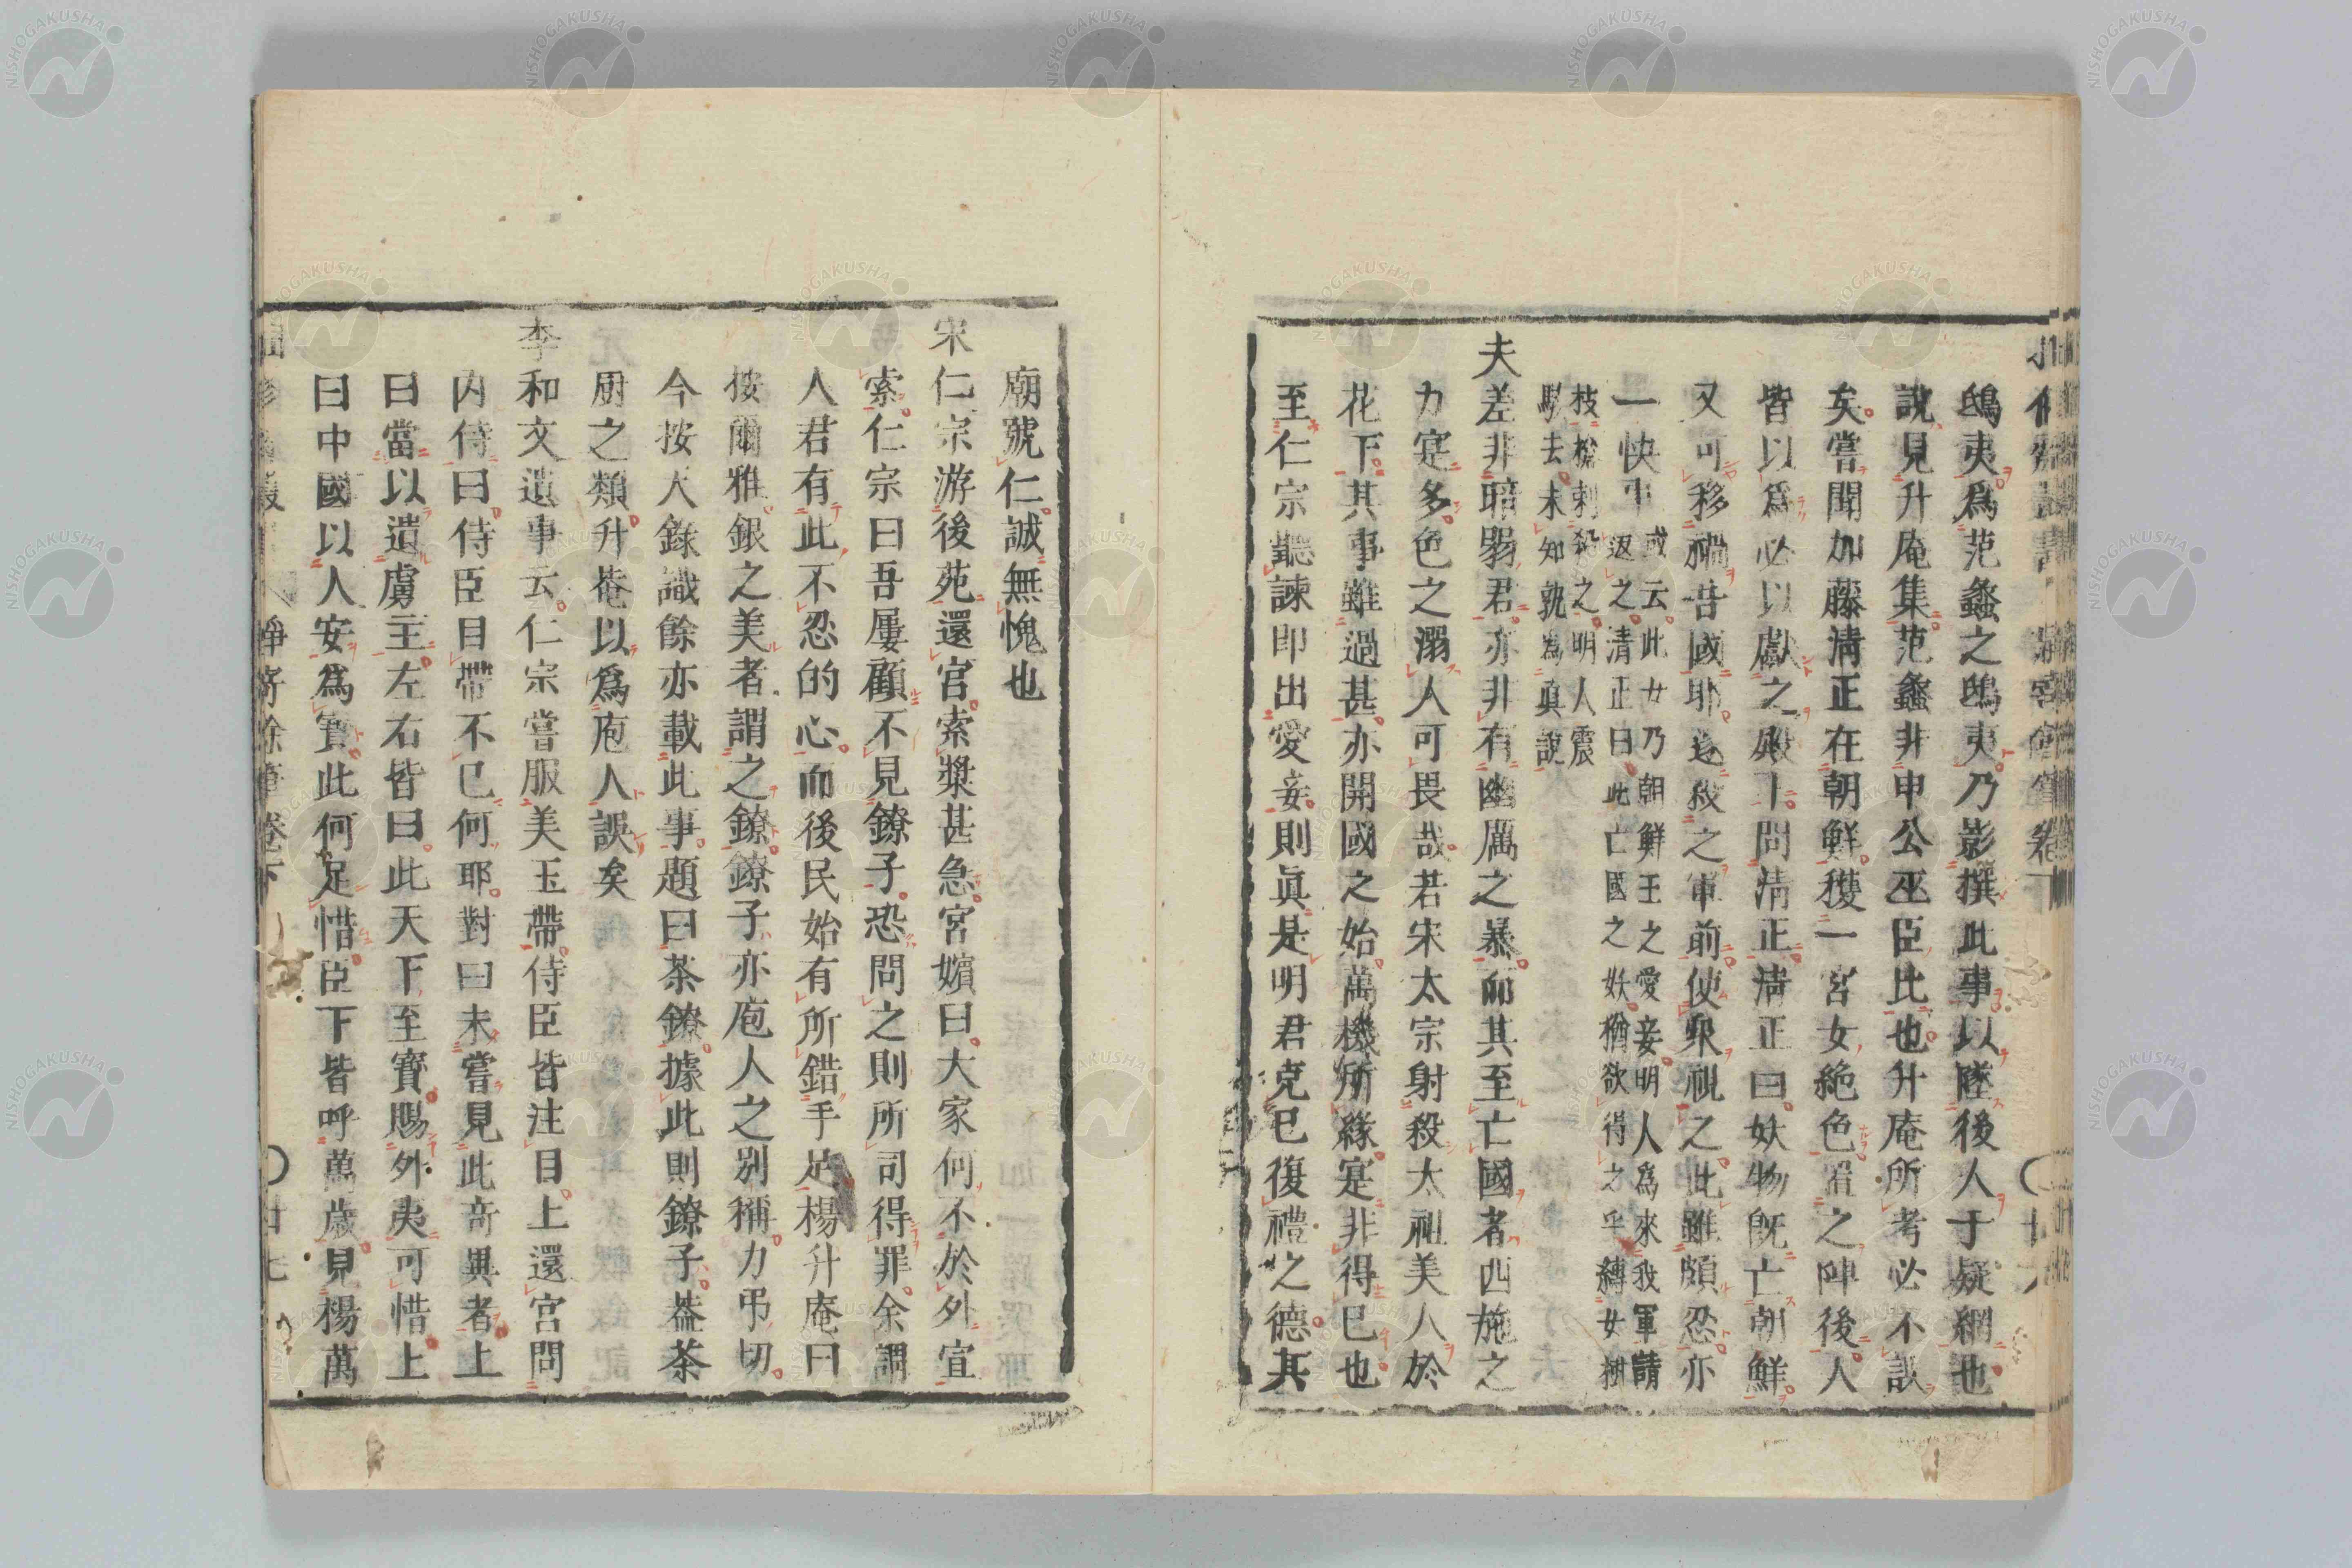 鴟夷爲范蠡之鴟夷乃影撰此事以墜後人于疑網也
說見升庵集范蠡非申公巫臣比也升庵所考必不誤
矣嘗聞加藤淸正在朝鮮獲一宮女絶色置之陣後人
皆以爲必以獻之殿下問淸正淸正曰妖物旣亡朝鮮
又可移禍吾國耶遂殺之軍前使衆視之此雖頗忍亦
一快事或云此女乃朝鮮王之愛妾明人爲來我軍請
返之清正曰此亡國之妖猶欲得之乎縛女樹
枝槍刺殺之明人震
駭去未知孰爲眞說
夫差非暗弱君亦非有幽厲之暴而其至亡國者西施之
力寔多色之溺人可畏哉若宋太宗射殺太祖美人於
花下其事雖過甚亦開國之始萬機所緣寔非得已也
至仁宗聽諫卽出愛妾則眞是明君克己復禮之德其
廟號仁誠無愧也
宋仁宗游後苑還宮索漿甚急宮嬪曰大家何不於外宣
索仁宗曰吾屢顧不見鐐子恐問之則所司得罪余謂
人君有此不忍的心而後民始有所錯手足楊升庵曰
按爾雅銀之美者謂之鐐鐐子亦庖人之別稱力弔切
今按大錄識餘亦載此事題曰茶鐐據此則鐐子葢茶
厨之類升菴以爲庖人誤矣
李和文遺事云仁宗嘗服美玉帶侍臣皆注目上還宮問
內侍曰侍臣目帶不已何耶對曰未嘗見此奇異者上
曰當以遺虜主左右皆曰此天下至寶賜外夷可惜上
曰中國以人安爲寶此何足惜臣下皆呼萬歲見楊萬